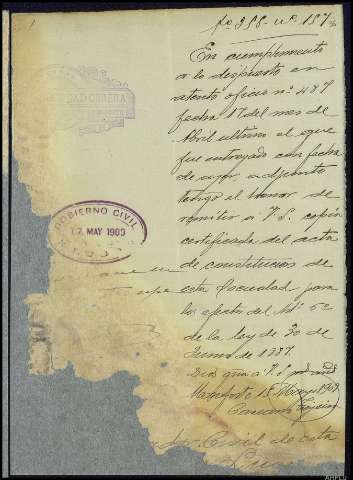 En cumplimiento
a lo dispuesto en
atento oficio nº 487
fecha 17 del mes de
Abril ultimo el que
fue entregado con fecha
de ayer, adjunto
tengo el honor de
remitir a V. S. copia
certificada del acta
de constitucion de
esta Sociedad para
los efectos del Art 5º
de la ley de 30 de
Junio de 1887.
Dios gue a V. S. ms as
15 Mayo 1909
GOBIERNO CIVIL
17 MAY 1909
Civil de esta